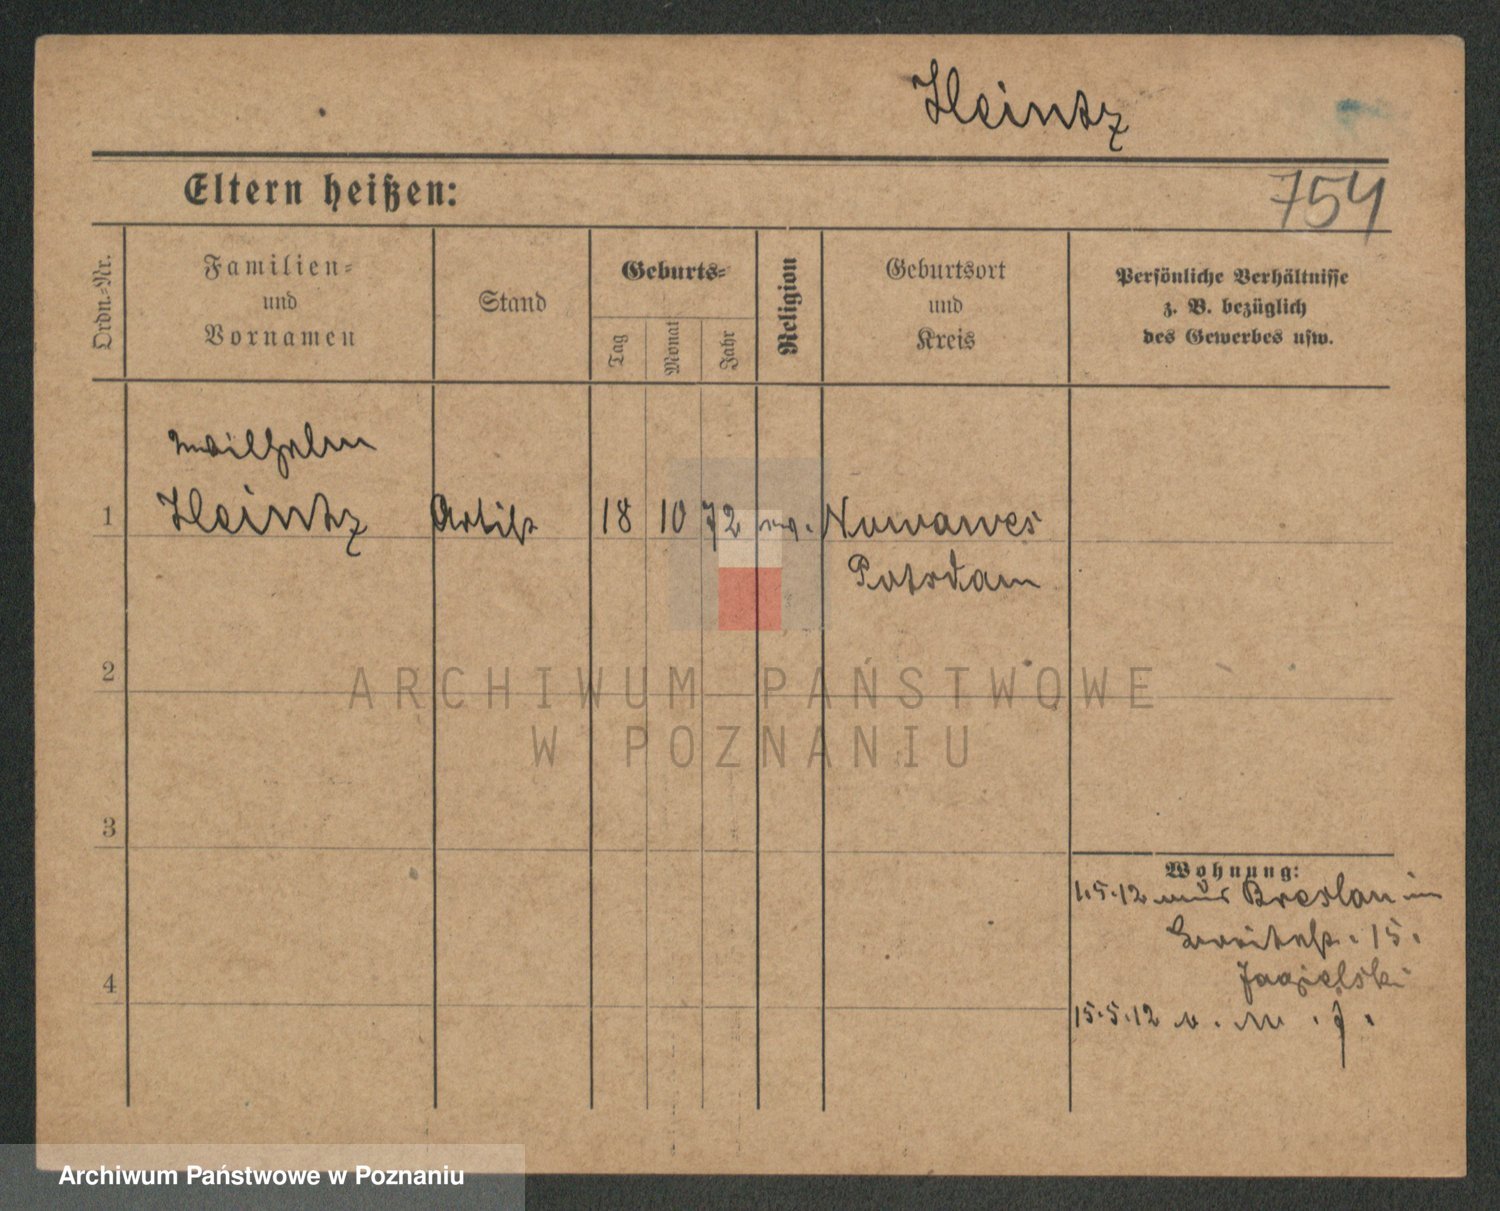 Heintz
Eltern heißen:
754
Ordn.-Nr.
Familien-
und
Vornamen
Stand
Geburts-
Tag
Monat
Jahr
Religion
Geburtsort
und
Kreis
Persönliche Verhältnisse
z. B. bezüglich
des Gewerbes usw.
Wilhelm
1 Heintz Artist 18 10 72 ev. Nowawes
Potsdam
2
3
4
Wohnung:
1.5.12 aus Breslau in
15.
Jagielski
15.5.12
ARCHIWUM PAŃSTWOWE
W POZNANIU
Archiwum Państwowe w Poznaniu